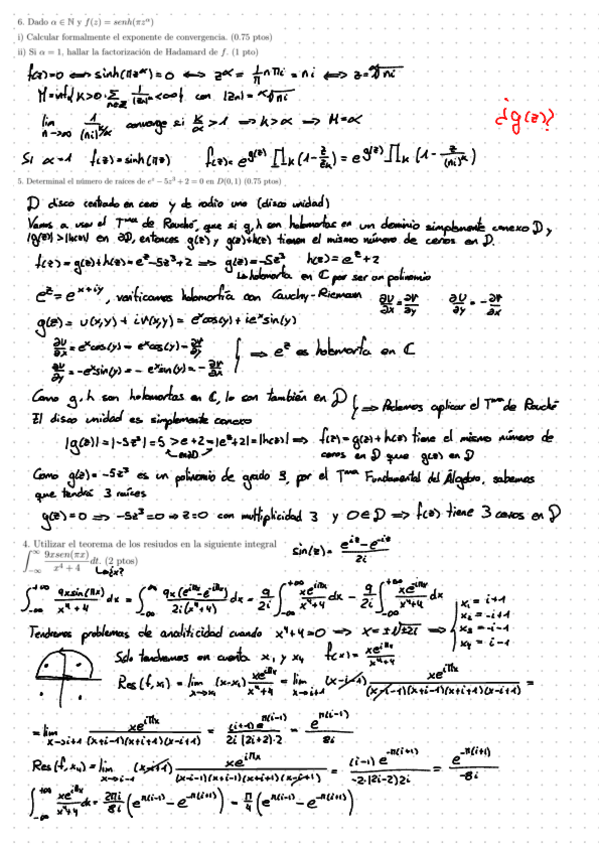 6. Dado α ∈ ℕ y f(z) = senh(πz^α)
i) Calcular formalmente el exponente de convergencia. (0.75 ptos)
ii) Si α = 1, hallar la factorización de Hadamard de f. (1 pto)
f(z)=0 ⟺ sinh(πz^α)=0 ⟺ z^α = 1/π nπi = ni ⟺ z = ᵅ√ni
H=inf{k>0: Σ_{n∈ℤ} 1/|zn|^k <∞} con |zn| = ᵅ√ni
lim_{n→∞} 1/(ni)^{k/α} converge si k/α >1 ⟹ k>α ⟹ H=α
¿g(z)?
Si α=1 f(z)=sinh(πz) f(z)= e^{g(z)} ∏_k (1 - z/z_k) = e^{g(z)} ∏_k (1 - z/(ni)^k)
5. Determinal el número de raíces de e^z − 5z³ + 2 = 0 en D(0,1) (0.75 ptos)
D disco centrado en cero y de radio uno (disco unidad)
Vamos a usar el Tma de Rouché, que si g,h son holomorfas en un dominio simplemente conexo D y
|g(z)|>|h(z)| en ∂D, entonces g(z) y g(z)+h(z) tienen el mismo número de ceros en D.
f(z)=g(z)+h(z)=e^z-5z³+2 ⟹ g(z)=-5z³ h(z)= e^z+2
↳ holomorfa en ℂ por ser un polinomio
e^z = e^{x+iy}, verificamos holomorfía con Cauchy-Riemann ∂u/∂x = ∂v/∂y ∂u/∂y = -∂v/∂x
g(z) = u(x,y) + iv(x,y) = e^x cos(y) + ie^x sin(y)
∂u/∂x = e^x cos(y) = e^x cos(y) = ∂v/∂y
∂u/∂y = -e^x sin(y) = - e^x sin(y) = - ∂v/∂x
⟹ e^z es holomorfa en ℂ
Como g,h son holomorfas en ℂ, lo son también en D
El disco unidad es simplemente conexo
⟹ Podemos aplicar el Tma de Rouché
|g(z)| = |-5z³| = 5 > e+2 = |e^z+2| = |h(z)| ⟹ f(z)=g(z)+h(z) tiene el mismo número de
en ∂D ceros en D que g(z) en D
Como g(z)=-5z³ es un polinomio de grado 3, por el Tma Fundamental del Álgebra, sabemos
que tendrá 3 raíces
g(z)=0 ⟹ -5z³=0 ⟹ z=0 con multiplicidad 3 y 0∈D ⟹ f(z) tiene 3 ceros en D
4. Utilizar el teorema de los resiudos en la siguiente integral
∫_{-∞}^{∞} 9xsen(πx)/(x⁴+4) dt. (2 ptos)
↳ ¿x?
sin(z)= (e^{iz}-e^{-iz})/2i
∫_{-∞}^{+∞} 9xsin(πx)/(x⁴+4) dx = ∫_{-∞}^{∞} 9x(e^{iπx}-e^{-iπx})/(2i(x⁴+4)) dx = 9/2i ∫_{-∞}^{+∞} xe^{iπx}/(x⁴+4) dx - 9/2i ∫_{-∞}^{+∞} xe^{-iπx}/(x⁴+4) dx
Tendremos problemas de analiticidad cuando x⁴+4=0 ⟹ x=±√±2i ⟹
x₁ = i+1
x₂ = -i+1
x₃ = -i-1
x₄ = i-1
Solo tendremos en cuenta x₁ y x₄ f(x)= xe^{iπx}/(x⁴+4)
Res(f,x₁) = lim_{x→x₁} (x-x₁) xe^{iπx}/(x⁴+4) = lim_{x→i+1} (x-i-1) xe^{iπx}/((x-i-1)(x+i-1)(x+i+1)(x-i+1)) =
= lim_{x→i+1} xe^{iπx}/((x+i-1)(x+i+1)(x-i+1)) = (i+1)e^{π(i-1)}/(2i(2i+2)·2) = e^{π(i-1)}/8i
Res(f,x₄) = lim_{x→i-1} (x-i+1) xe^{iπx}/((x-i-1)(x+i-1)(x+i+1)(x-i+1)) = (i-1)e^{-π(i+1)}/(-2·(2i-2)2i) = e^{-π(i+1)}/-8i
∫_{-∞}^{+∞} xe^{iπx}/(x⁴+4) dx = 2πi/8i (e^{π(i-1)} - e^{-π(i+1)}) = π/4 (e^{π(i-1)} - e^{-π(i+1)})